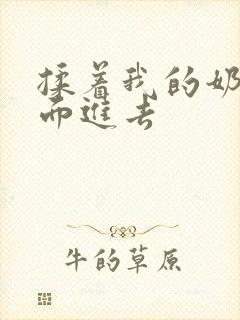 揉着我的奶
而进去
牛的草原